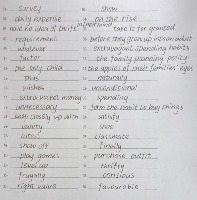 survey show
daily expense on the rise
have no idea of thrift in/from hand take is for granted
requirement before they grow up into an adult
whatever extravagant spending habits
factor the family planning policy
the only child the apples of their families' eyes
thus naturally
wishes unconditional
extra pocket money spending
unnecessary form the habit to buy things
satisfy
vanity save
latest classmate
show off finally
play games purchase outfit
level up thrifty
frugally conscious
right value favourable